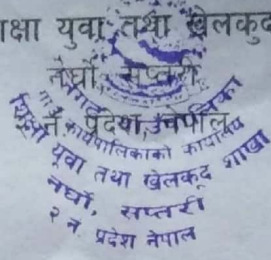 क्षा युवा तथा खेलकुद
नेघौं, सप्तरी
२ नं. प्रदेश, नेपाल
गा कार्यपालिकाको कार्यालय
शिक्षा युवा तथा खेलकूद शाखा
नर्घो, सप्तरी
२ नं. प्रदेश नेपाल